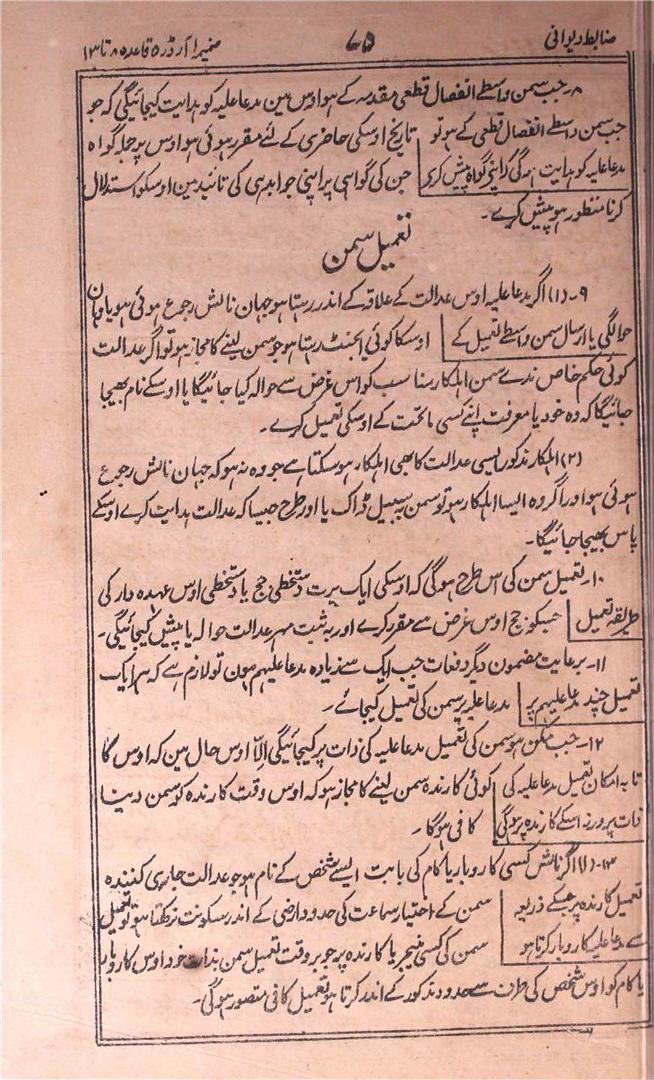 ضابطہ دیوانی
۷۵
ضمیمہ ا آرڈر ۵ قاعدہ ۸ تا ۱۳
۸۔ جب سمن واسطے انفصال قطعی مقدمہ کے ہو اوس مین مدعا علیہ کو ہدایت کیجائیگی کہ جو
جب سمن واسطے انفصال قطعی کے ہو تو
تاریخ اوسکی حاضری کے لئے مقرر ہوئی ہو اوس پر جملہ گواہ
مدعا علیہ کو ہدایت ہوگی کہ اپنے گواہ پیش کرے
جن کی گواہی پر اپنی جوابدہی کی تائید مین اوسکو استدلال
کرنا منظور ہو پیش کرے۔
تعمیل سمن
۹۔ (۱) اگر مدعا علیہ اوس عدالت کے علاقہ کے اندر رہتا ہو جہان نالش رجوع ہوئی ہو یا وہان
حوالگی یا ارسال سمن واسطے تعمیل کے
اوسکا کوئی ایجنٹ رہتا ہو جو سمن لینے کا مجاز ہو تو اگر عدالت
کوئی حکم خاص ندے سمن اہلکار مناسب کو اس غرض سے حوالہ کیا جائیگا یا اوسکے نام بھیجا
جائیگا کہ وہ خود یا معرفت اپنے کسی ماتحت کے اوسکی تعمیل کرے۔
(۲) اہلکار مذکور ایسی عدالت کا بھی اہلکار ہو سکتا ہے جو وہ نہ ہو کہ جہان نالش رجوع
ہوئی ہو اور اگر وہ ایسا اہلکار ہو تو سمن بسبیل ڈاک یا اور طرح جیسا کہ عدالت ہدایت کرے اوسکے
پاس بھیجا جائیگا۔
۱۰۔ تعمیل سمن کی اس طرح ہوگی کہ اوسکی ایک پرت دستخطی جج یا دستخطی اوس عہدہ دار کی
طریقہ تعمیل
جسکو جج اوس غرض سے مقرر کرے اور بہ ثبت مہر عدالت حوالہ یا پیش کیجائیگی۔
۱۱۔ برعایت مضمون دیگر دفعات جب ایک سے زیادہ مدعا علیہم ہون تو لازم ہے کہ ہر ایک
تعمیل چند مدعا علیہم پر
مدعا علیہ پر سمن کی تعمیل کیجائے۔
۱۲۔ جب ممکن ہو سمن کی تعمیل مدعا علیہ کی ذات پر کیجائیگی الاّ اوس حال مین کہ اوس کا
تا بہ امکان تعمیل مدعا علیہ کی
کوئی کارندہ سمن لینے کا مجاز ہو کہ اوس وقت کارندہ کو سمن دینا
ذات پر ورنہ اسکے کارندہ پر ہوگی
کافی ہوگا۔
۱۳۔ (۱) اگر نالش کسی کاروبار یا کام کی بابت ایسے شخص کے نام ہو جو عدالت جاری کنندہ
تعمیل کارندہ پر جسکے ذریعہ
سمن کے اختیار سماعت کی حدود ارضی کے اندر سکونت نرکھتا ہو تو تعمیل
سے مدعا علیہ کاروبار کرتا ہو
سمن کی کسی منیجر یا کارندہ پر جو بروقت تعمیل سمن بذات خود اوس کاروبار
یا کام کو اوس شخص کی طرف سے حدود مذکور کے اندر کرتا ہو تعمیل کافی متصور ہوگی۔